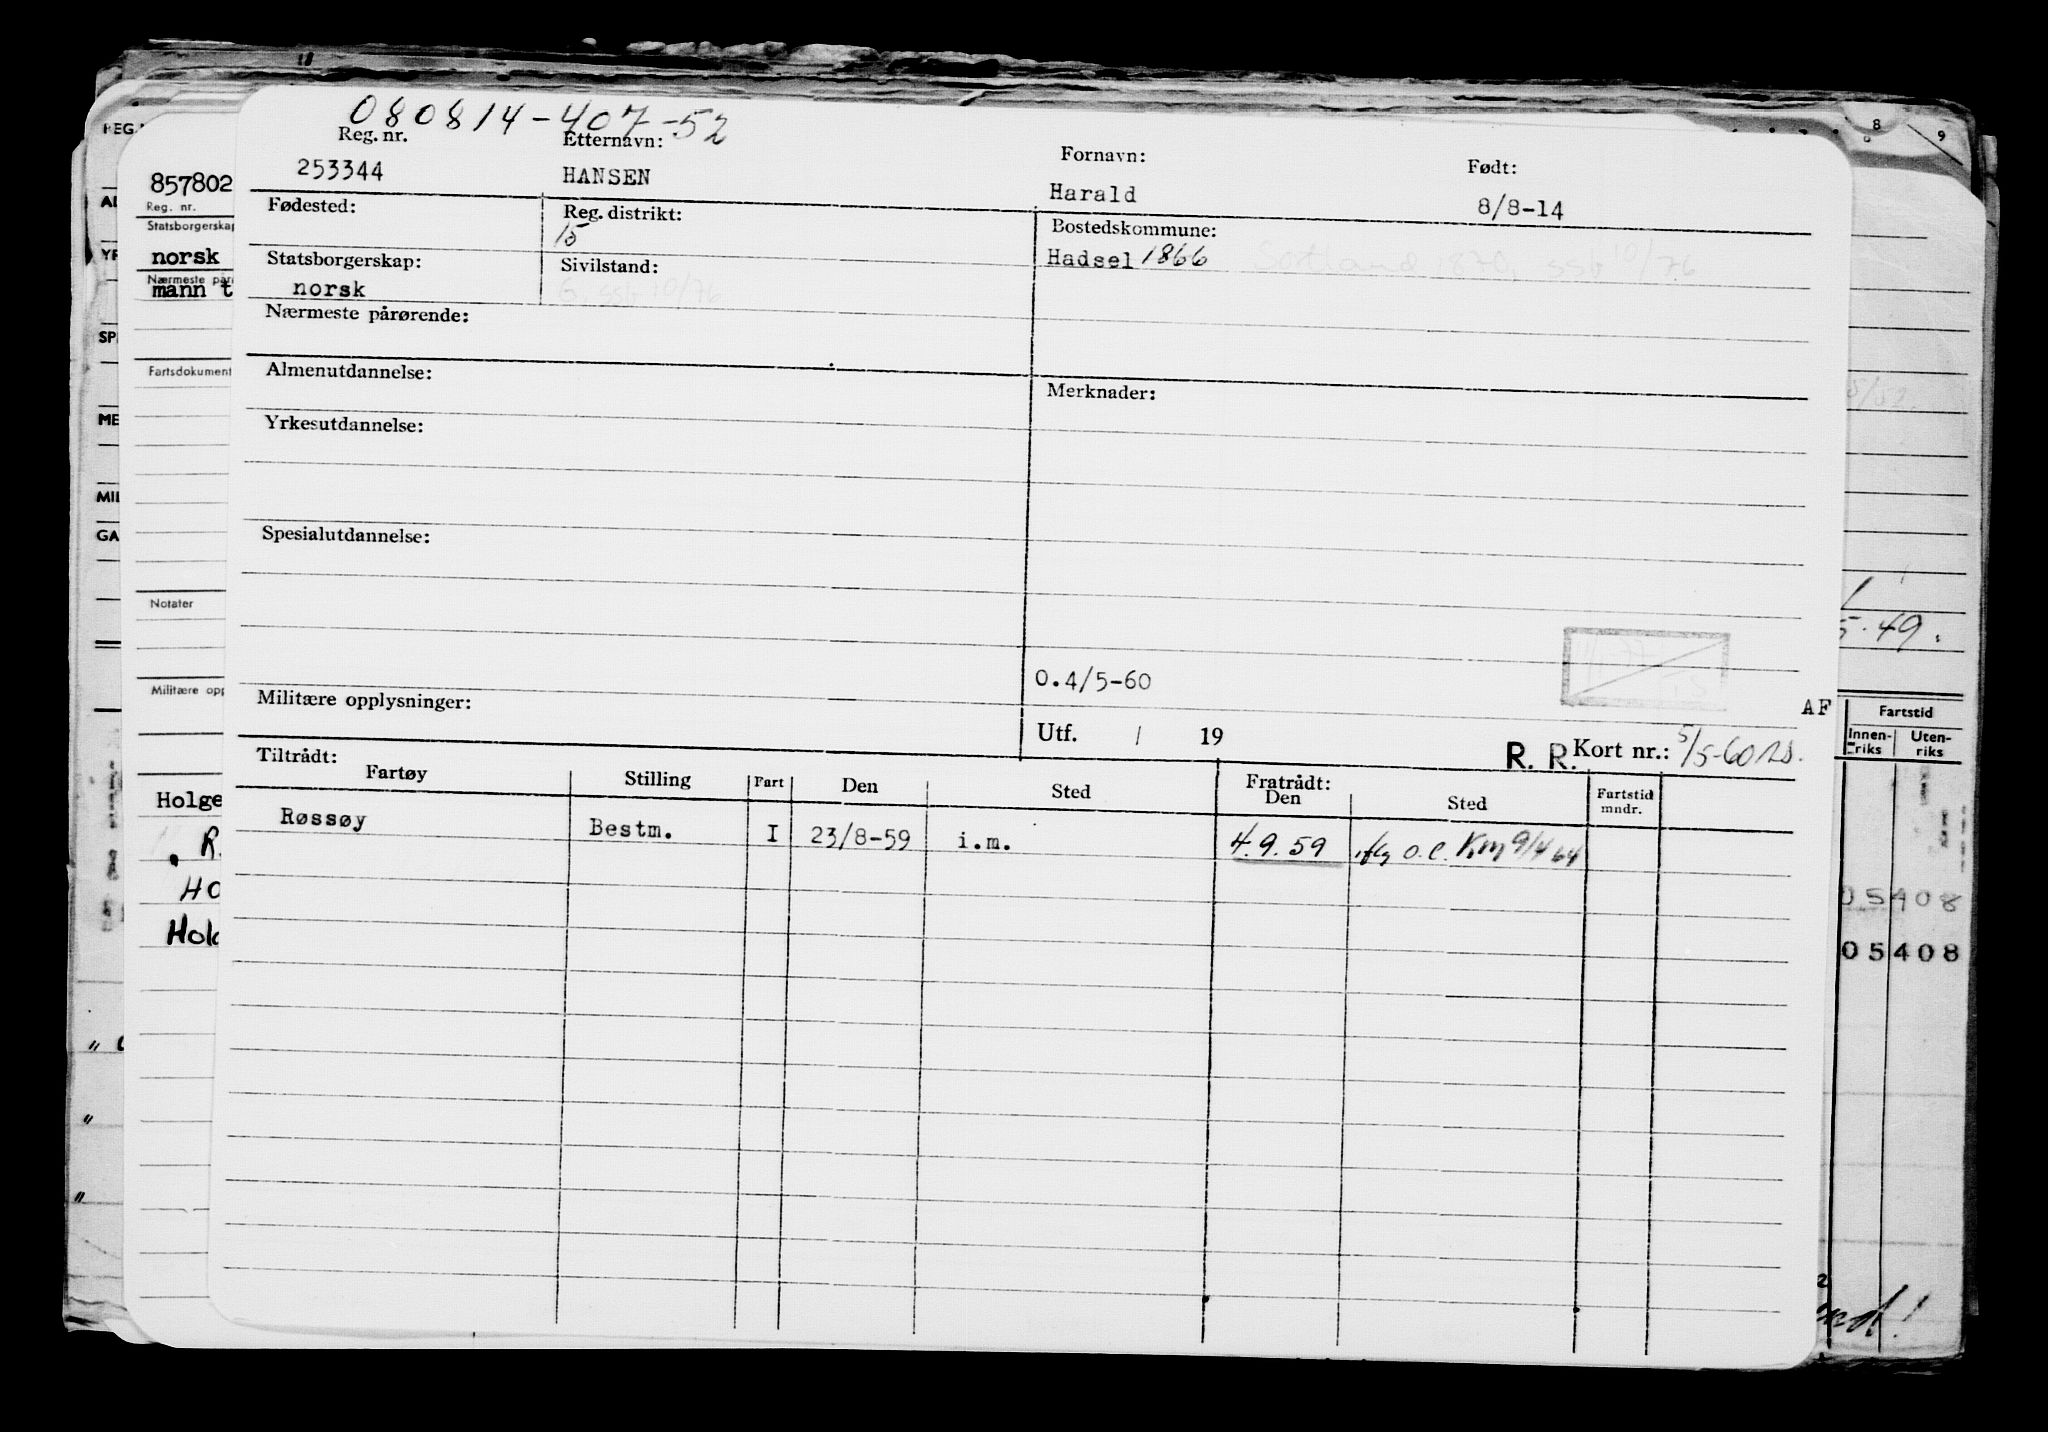 080814-407-52
Reg. nr. Etternavn: Fornavn: Født:
253344 HANSEN Harald 8/8-14
Fødested: Reg. distrikt: Bostedskommune:
15 Hadsel 1866 Sortland 1870, ssb 10/76
Statsborgerskap: Sivilstand:
norsk G, ssb 10/76
Nærmeste pårørende:
Almenutdannelse: Merknader:
Yrkesutdannelse:
Spesialutdannelse:
0.4/5-60
Militære opplysninger:
Utf. / 19 R. R. Kort nr.: 5/5-60
Tiltrådt: Fratrådt:
Fartøy Stilling Fart Den Sted Den Sted Fartstid mndr.
Røssøy Bestm. I 23/8-59 i.m. 4.9.59 iflg o.l. Km 9/4 64
REG.
857802
Reg. nr.
Statsborgerskap
norsk
Nærmeste
mann t
Fartsdokument
Notater
Militære opp
Holge
R.
HO
YR
SP
ME
MIL
GA
8 9
5/52.
5.49.
AF
Fartstid
Innen-riks Uten-riks
05408
05408